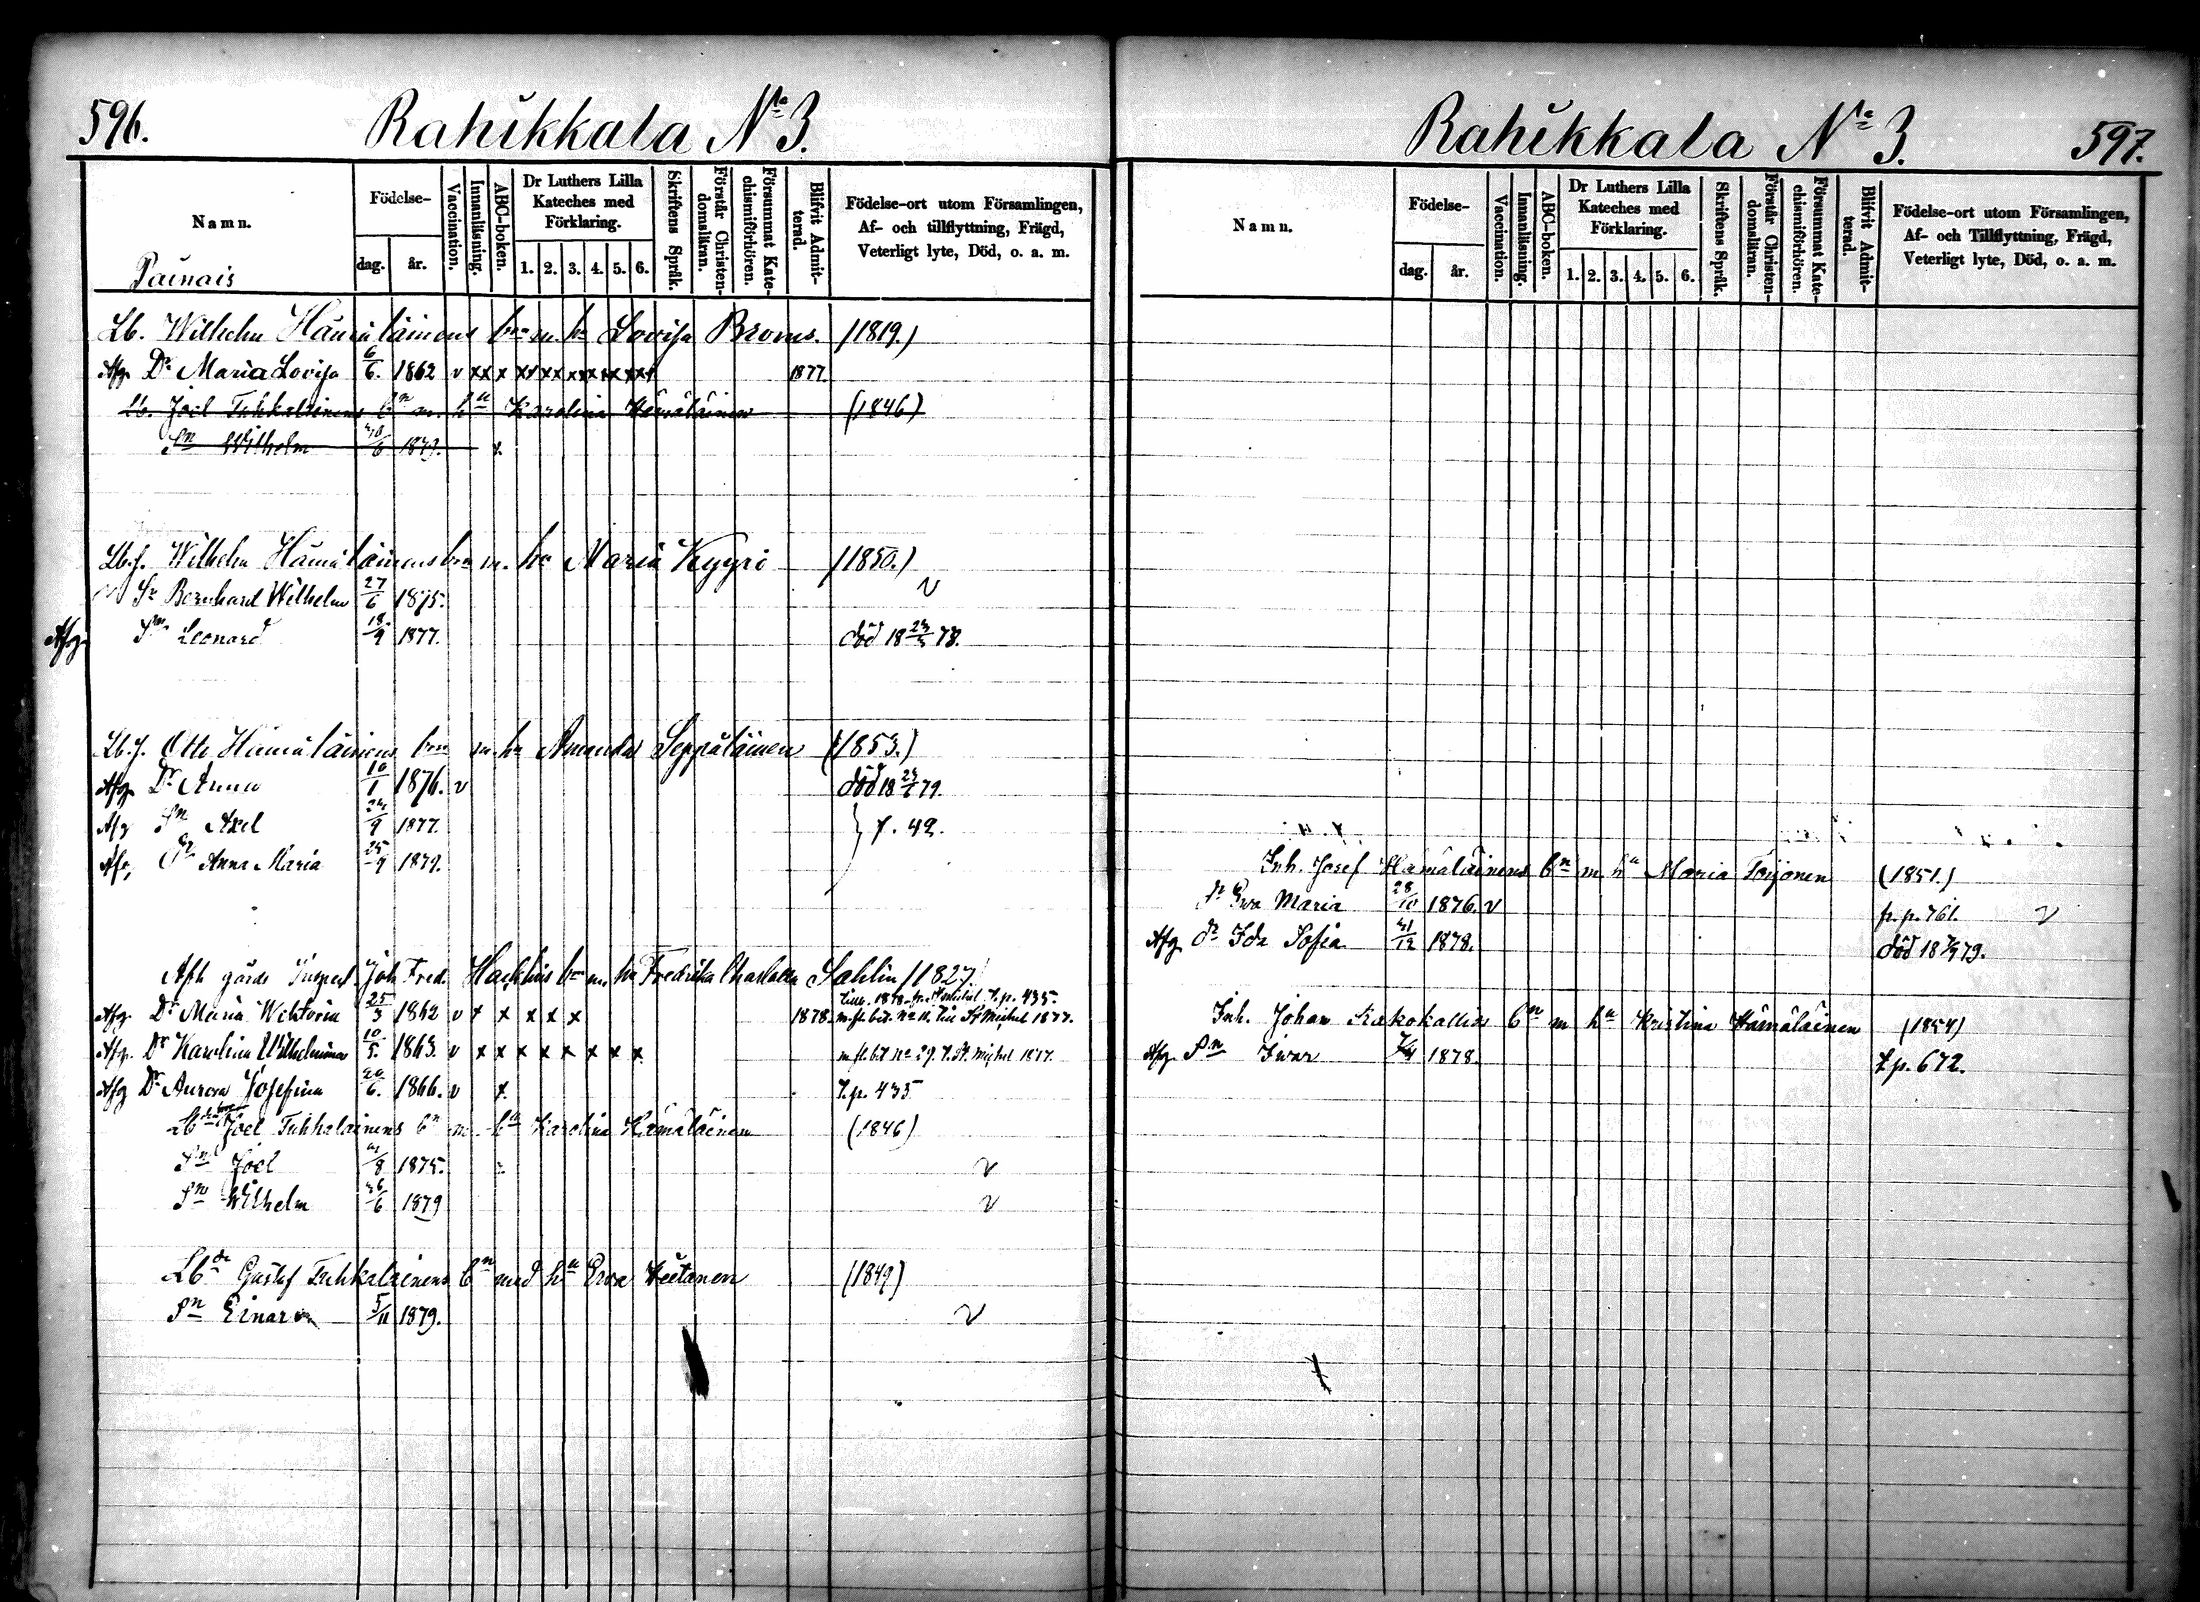 596.
Rahikkala No 3.
Namn.
Födelse-
dag.
år.
Vaccination.
Innanläsning.
ABC-boken.
Dr Luthers Lilla Kateches med Förklaring.
1. 2. 3. 4. 5. 6.
Skriftens Språk.
Förstår Christendomsläran.
Försummat Katechismiförhören.
Blifvit Admitterad.
Födelse-ort utom Församlingen, Af- och tillflyttning, Frägd, Veterligt lyte, Död, o. a. m.
Painais
Lb. Wilhelm Hämäläinens bn m. ha Lovisa Broms. (1819.)
Afg. Dr Maria Lovisa 6/6. 1862 v xx x xx xx xx xx xx xx 1877.
Lb. Joel Tuhkalainens bn m. ha Karolina Hämäläinen (1846)
Sn Wilhelm 1879. x
Lb.f. Wilhelm Hämäläinens bn m. ha Maria Kyyrö (1850.)
Sn Bernhard Wilhelm 27/6 1875. v
Afg. Sn Leonard 18/9 1877. död 18 78.
Lb.f. Otto Hämäläinens bn m. ha Amanda Seppäläinen (1853.)
Afg. Dr Anna 10/1 1876. v död 18 79.
Afg Sn Axel 1877. } 7. 42.
Afg. Dr Anna Maria 25/9 1879.
Afsk gårds Inspect. Joh. Fred. Hacklins bn m. ha Fredrika Charlotta Sahlin (1827.)
1878 7.p. 435.
Afg. Dr Maria Wiktoria 25/3 1862 v x x x x x 1878. m. fl. bet. No 11. till St Michel 1877.
Afg. Dr Karolina Wilhelmina 10/5. 1863. v x x x x x x x x m fl. bet No 29. t. St. Michel 1877.
Afg Dr Aurora Josefina 6. 1866. v x. 7.p. 435
Joel Tuhkalainens bn m. ha Karolina Hämäläinen (1846)
Sn Joel 8 1875. v
Sn Wilhelm 6 1879 v
Lbde Gustaf Tuhkalainens bn med ha Eva Wiitanen (1849)
Sn Einar 5/11 1879. v
Rahikkala No 3.
597.
Namn.
Födelse-
dag.
år.
Vaccination.
Innanläsning.
ABC-boken.
Dr Luthers Lilla Kateches med Förklaring.
1. 2. 3. 4. 5. 6.
Skriftens Språk.
Förstår Christendomsläran.
Försummat Katechismiförhören.
Blifvit Admitterad.
Födelse-ort utom Församlingen, Af- och Tillflyttning, Frägd, Veterligt lyte, Död, o. a. m.
Inh. Josef Hämäläinens bn m ha Maria Toijonen (1851.)
dr Eva Maria 28/10 1876. v fr. p. 761. v
Afg dr Ida Sofia 31/12 1878. död 18 79.
Inh. Johan Kukokallis bn m ha Kristina Hämäläinen (1854)
Afg. Sn Iwar 1878 7.p. 672.